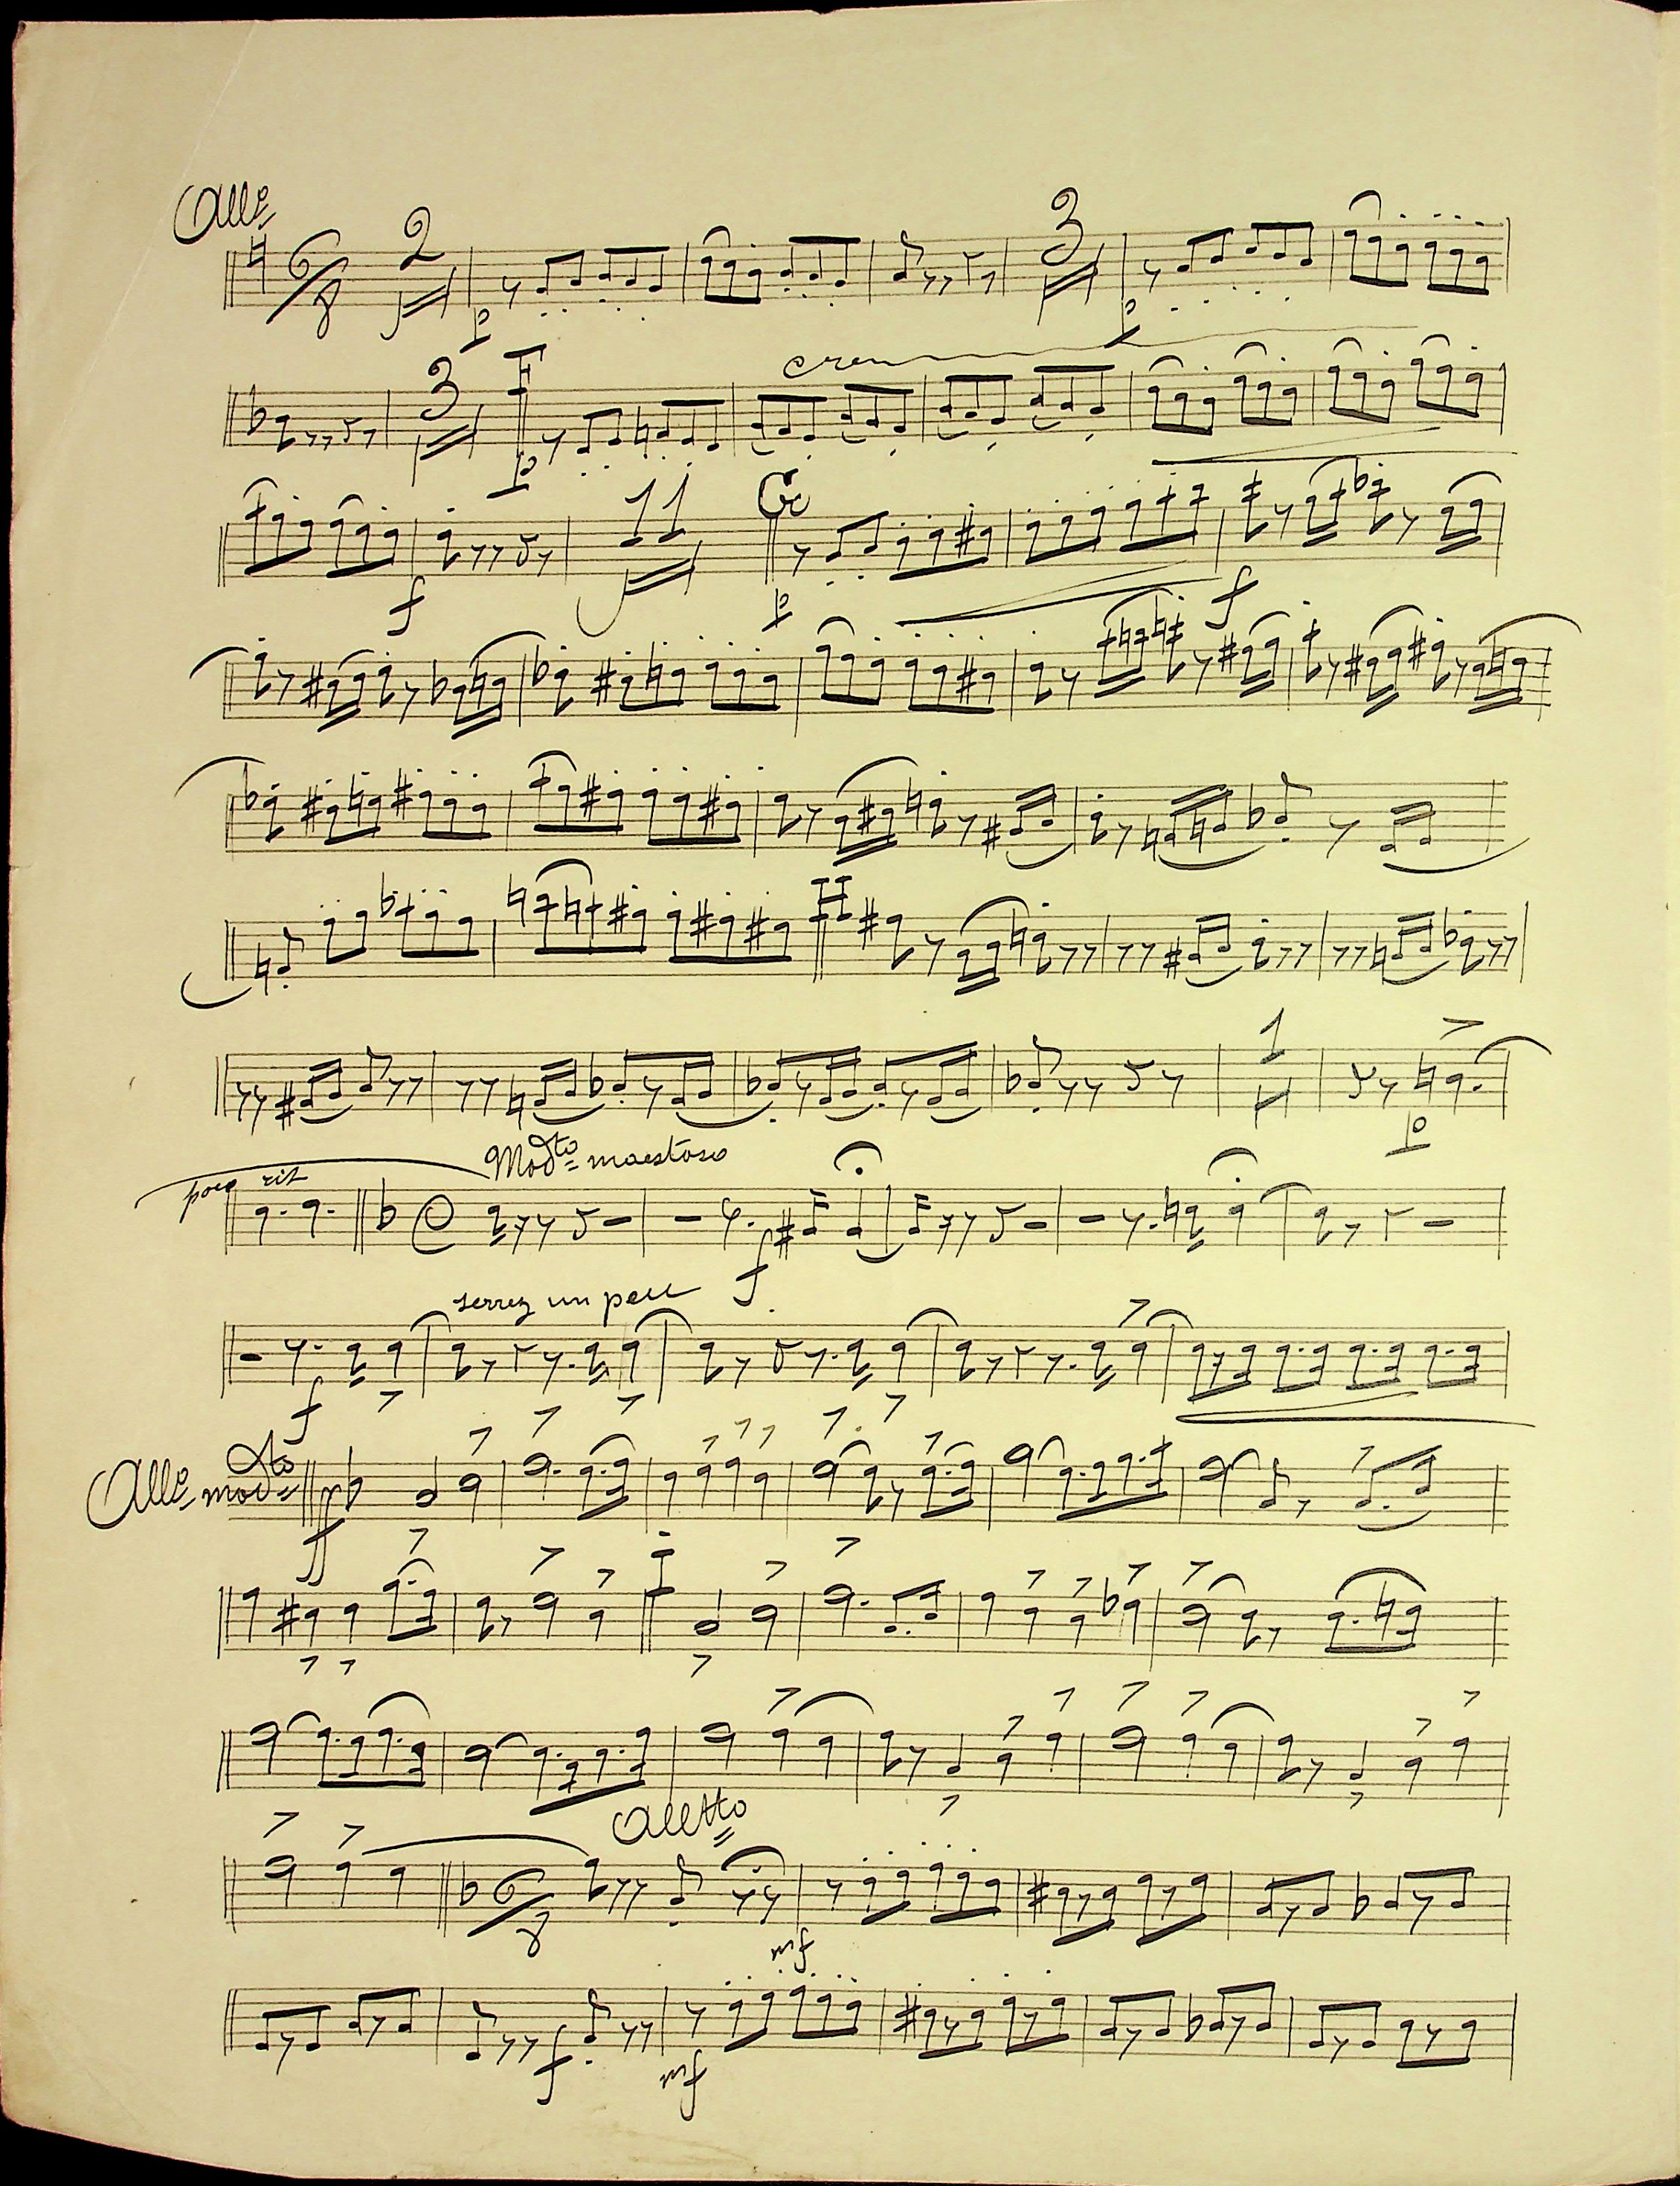 Allo
6/8 2 p 3 p
3 F p cres
f 11 G p f
H
1 p
poco rit Modto maestoso
C f
serrez un peu
f
Allo modto ff
I
Alltto
6/8 mf
f mf